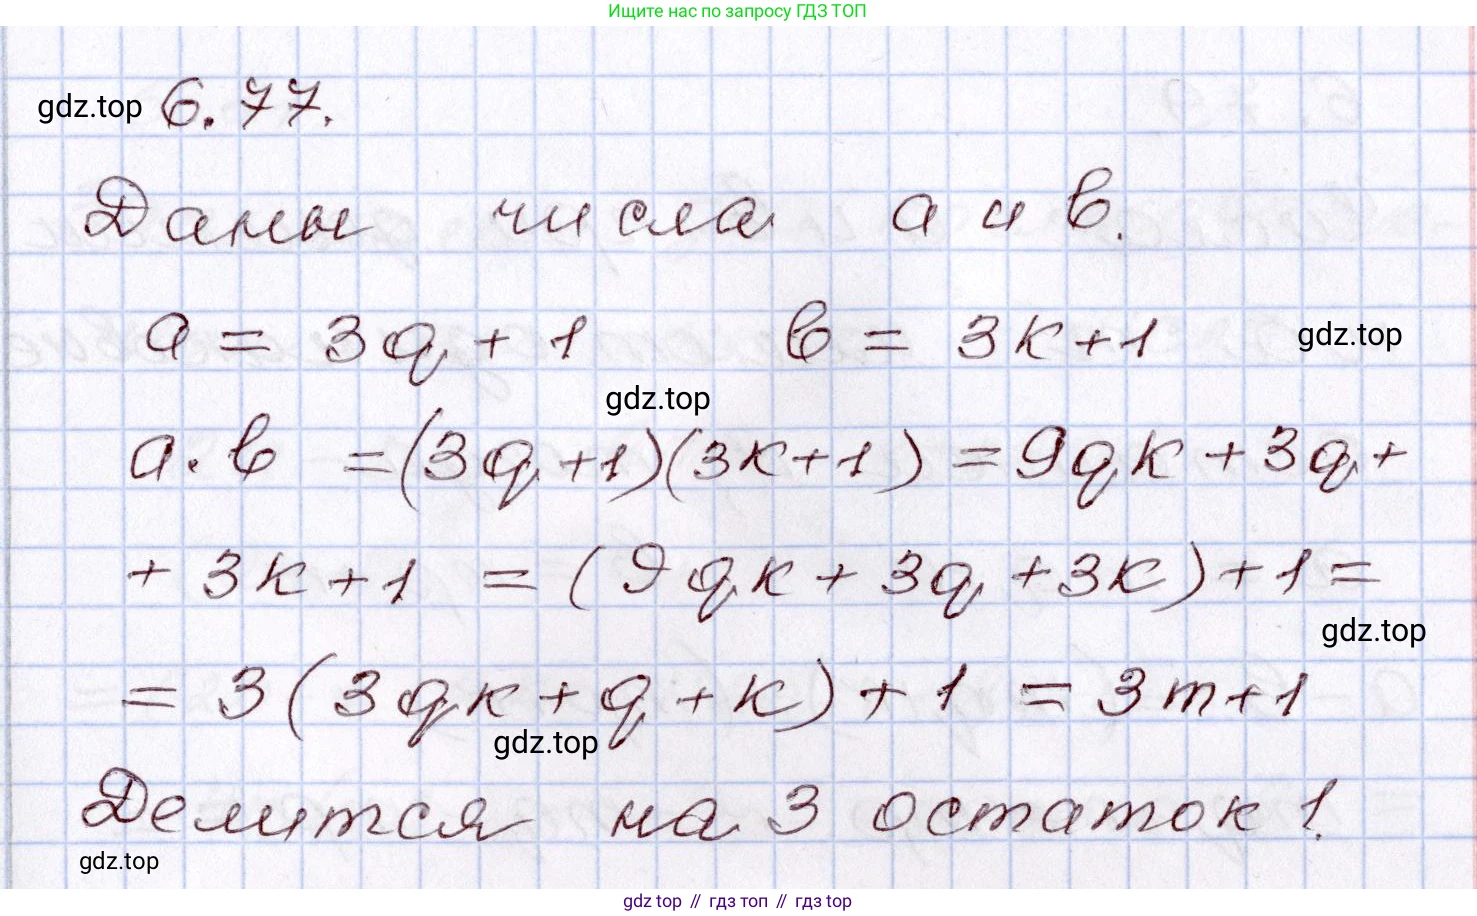 Ищите нас по запросу ГДЗ ТОП
gdz.top 6.77.
Даны числа a и b.
a = 3q + 1 b = 3k+1 gdz.top
gdz.top
a·b = (3q+1)(3k+1) = 9qk + 3q +
+ 3k+1 = (9qk + 3q + 3k) + 1 =
gdz.top
= 3(3qk + q + k) + 1 = 3m+1
gdz.top
Делится на 3 остаток 1.
gdz.top
gdz top // гдз топ // гдз top